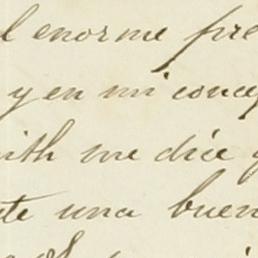 l enorme pre
y en mi concep
ith me dice q
te una buen